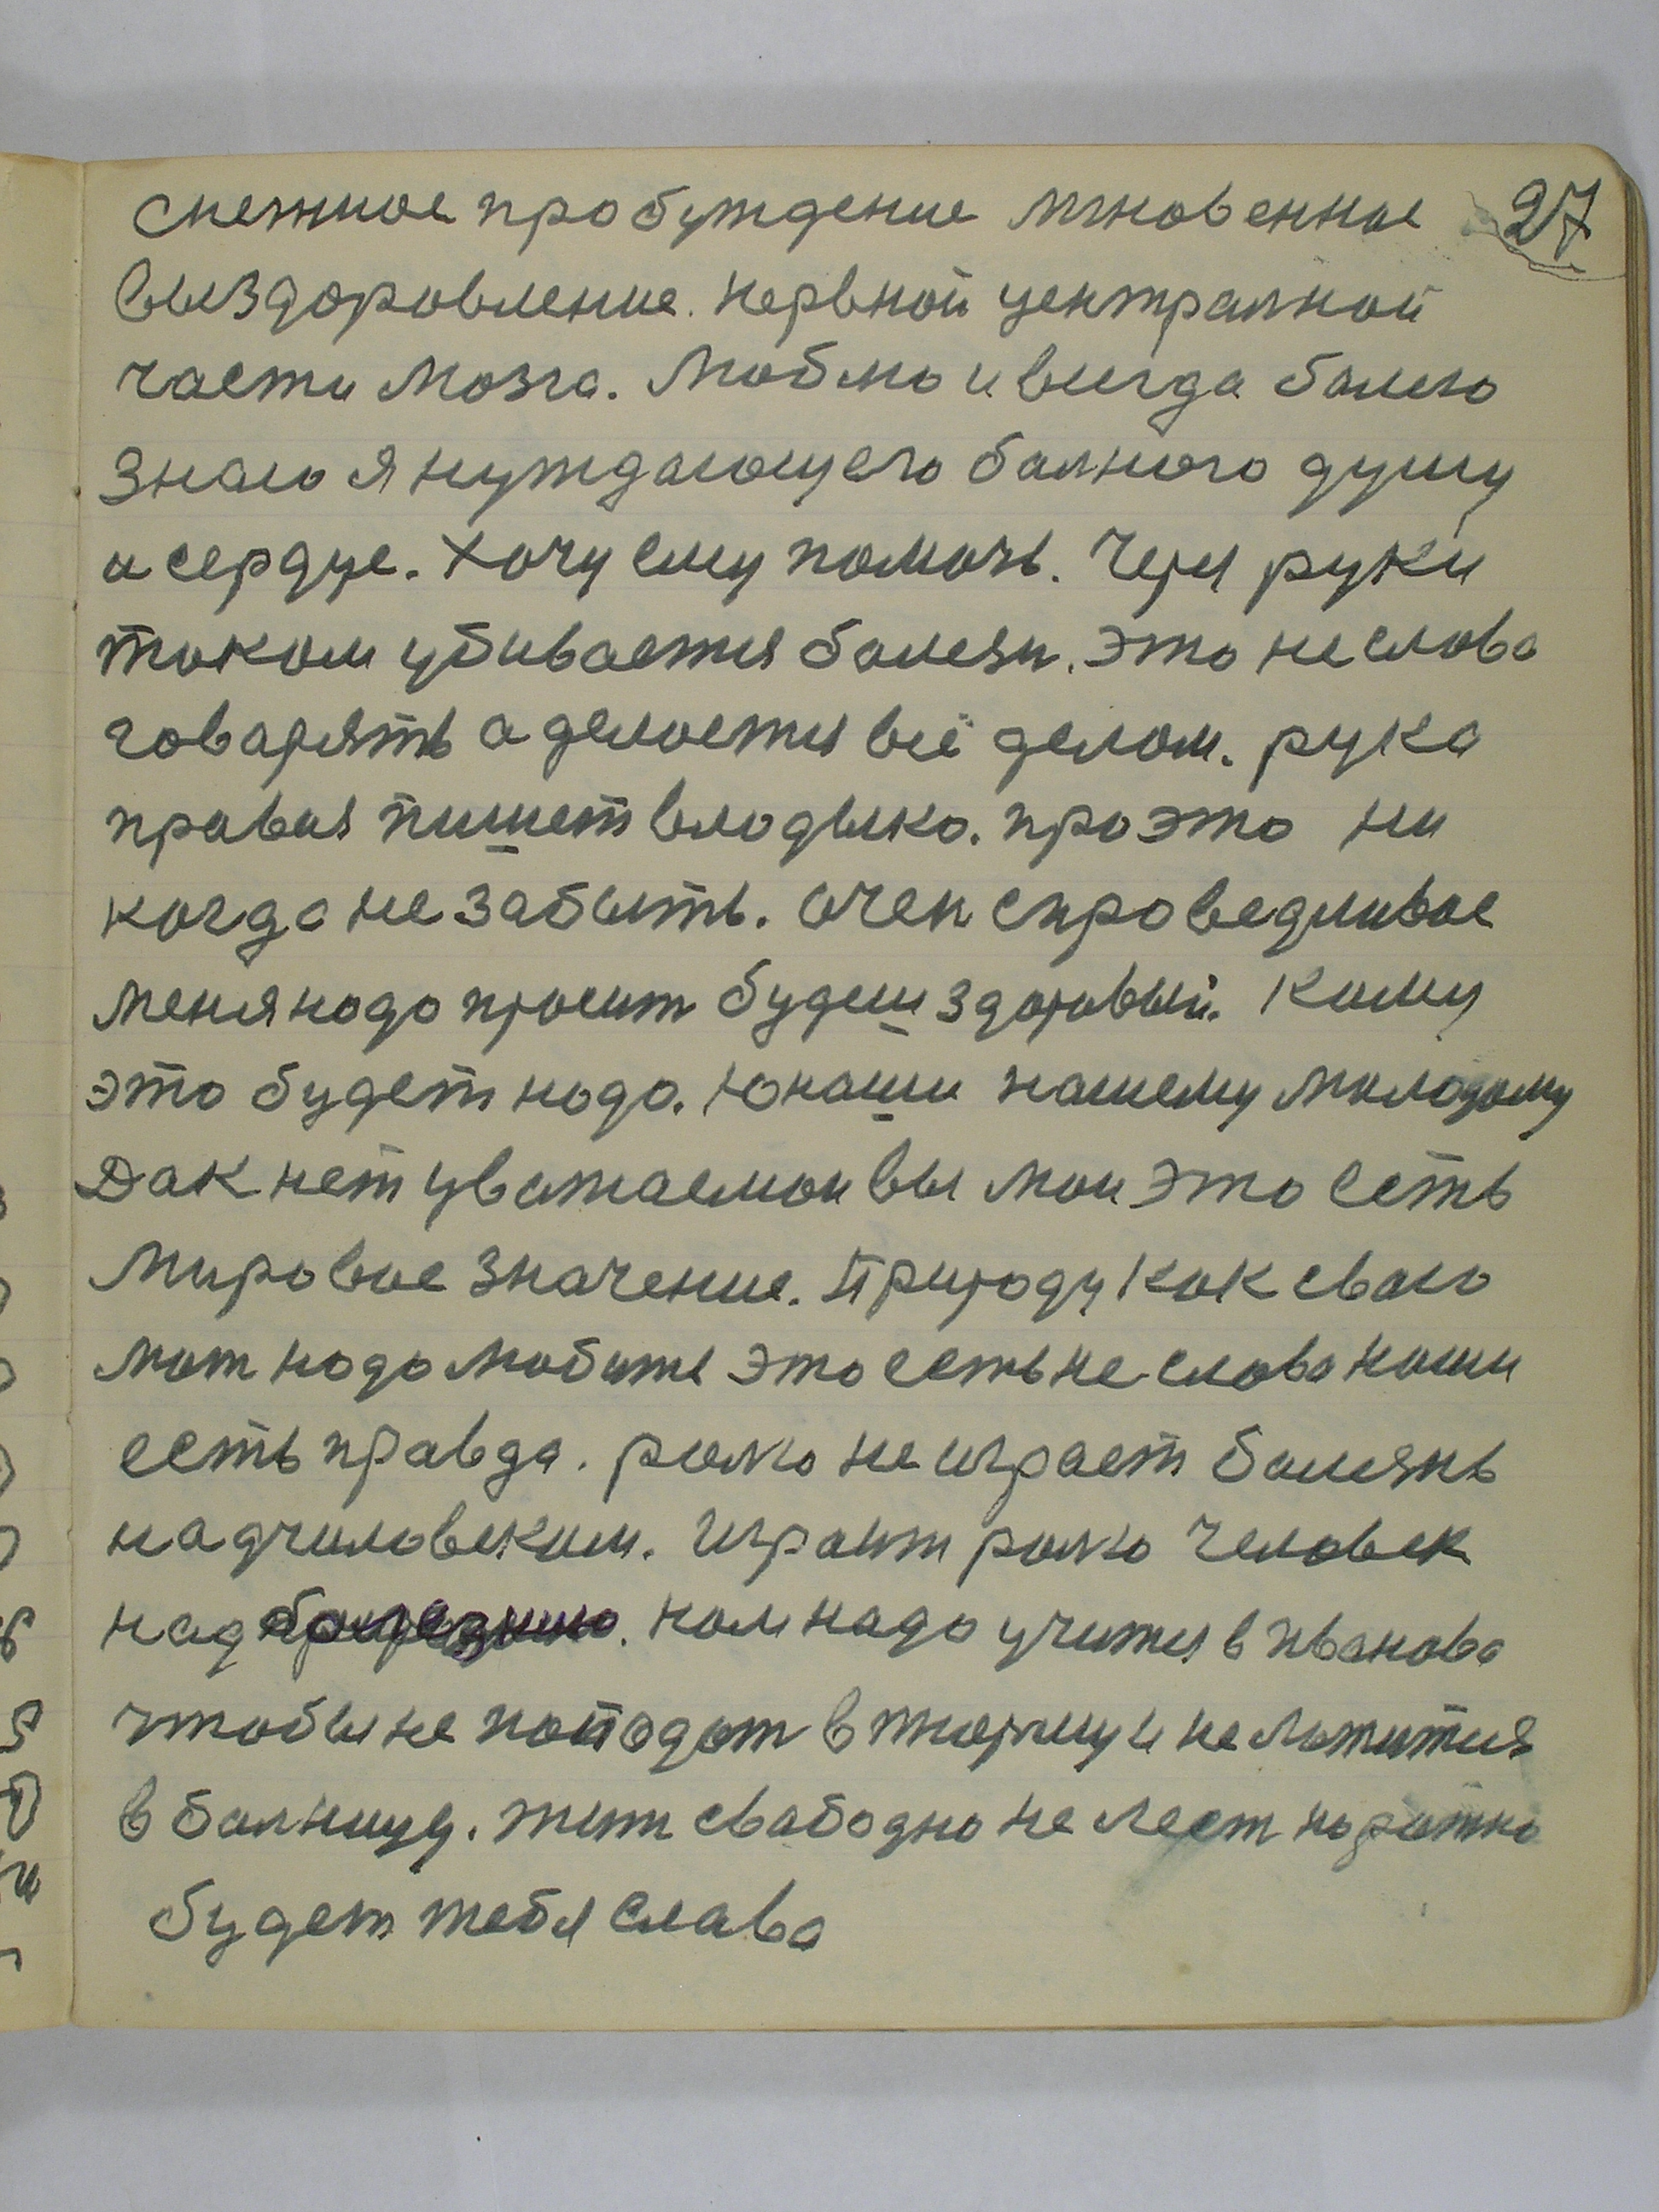 27
снежное пробуждение мгновенное
выздоровление. нервной централной
части мозга. Люблю и всегда болею
знаю я нуждающего болного душу
и сердце. Хочу ему помочь. Через руки
током убивается болезн. это не слова
говарять а делается всё делом. рука
правая пишет владыка. про это ни
когда не забыть. очен справедливое
меня надо просит будеш здоровый. Кому
это будет надо. Юноши нашему молодому
Дак нет уважаемои вы мои это есть
мировое значение. Природу как сваю
мат надо любить это есть не слова наши
есть правда. ролю не играет болезнь
над человеком. Играит ролю человек
над болезнию. нам надо учится в Иванова
чтобы не попадат в тюрму и не ложится
в болницу. жит свабодно не лезт на рожно
будет тебя слава